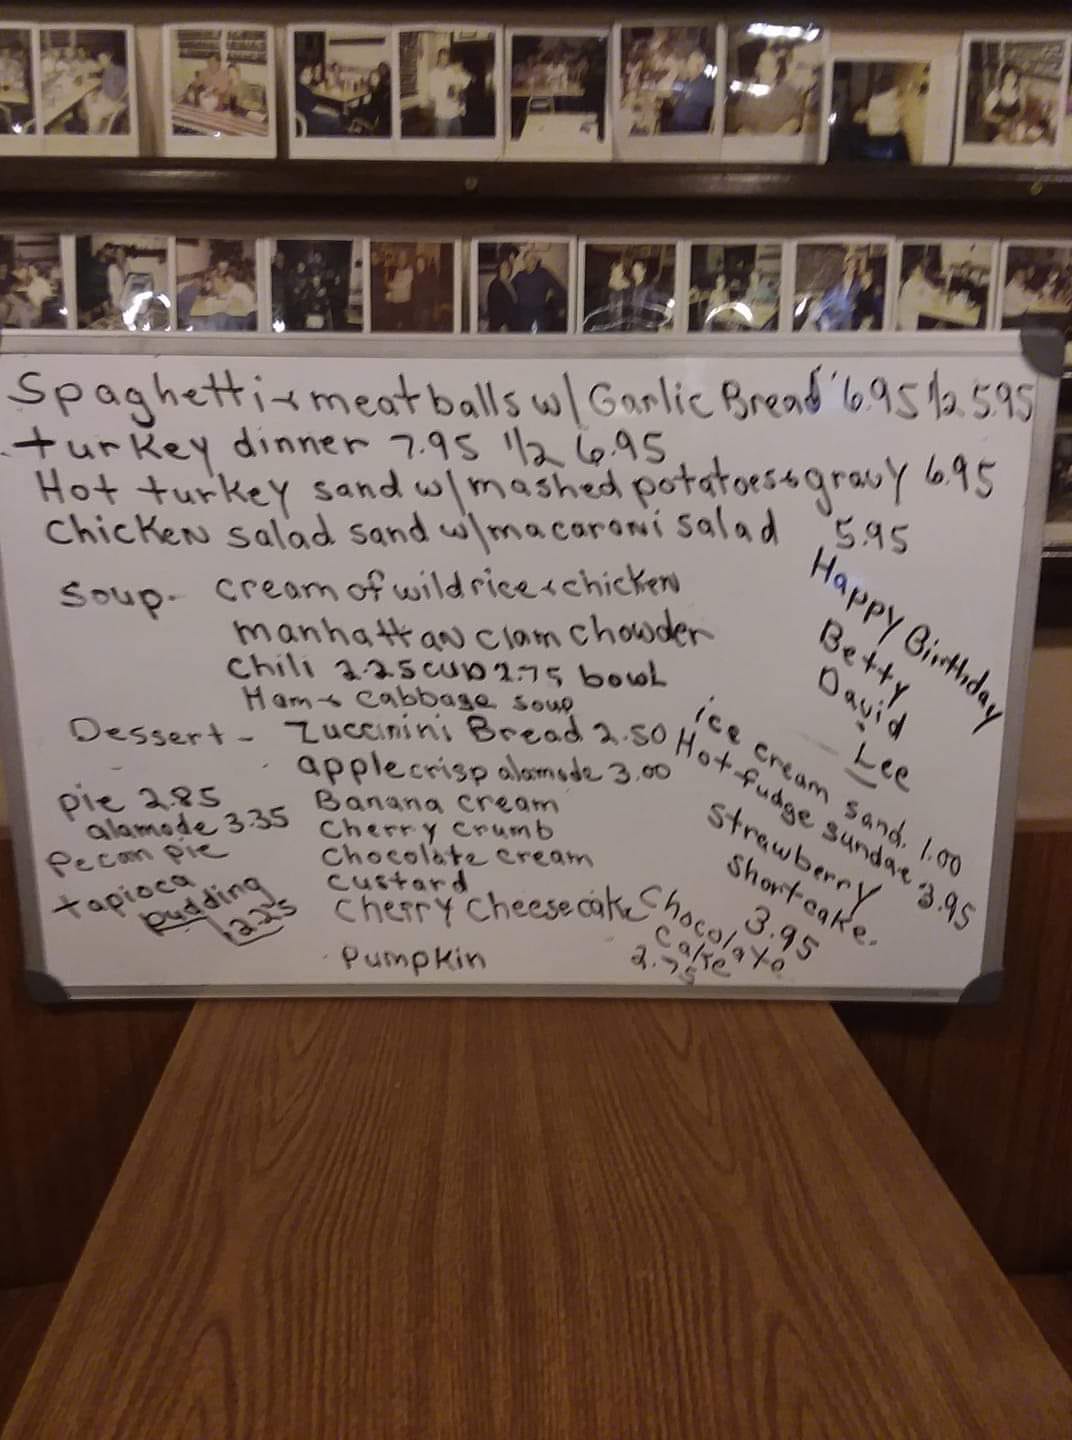 Spaghetti + meatballs w/ Garlic Bread 6.95 1/2 5.95
turkey dinner 7.95 1/2 6.95
Hot turkey sand w/ mashed potatoes + gravy 6.95
Chicken salad sand w/ macaroni salad 5.95
Soup - cream of wild rice + chicken
manhattan clam chowder
Chili 2.25 cup 2.75 bowl
Ham + Cabbage soup
Happy Birthday
Betty
David
Lee
Dessert - Zuccinini Bread 2.50
apple crisp alamode 3.00
pie 2.85
alamode 3.35
Pecan pie
tapioca
pudding
2.25
Banana cream
Cherry crumb
Chocolate cream
custard
Cherry Cheesecake
Pumpkin
ice cream sand. 1.00
Hot fudge sundae 3.95
Strawberry
Shortcake.
3.95
Chocolate
Cake
2.75